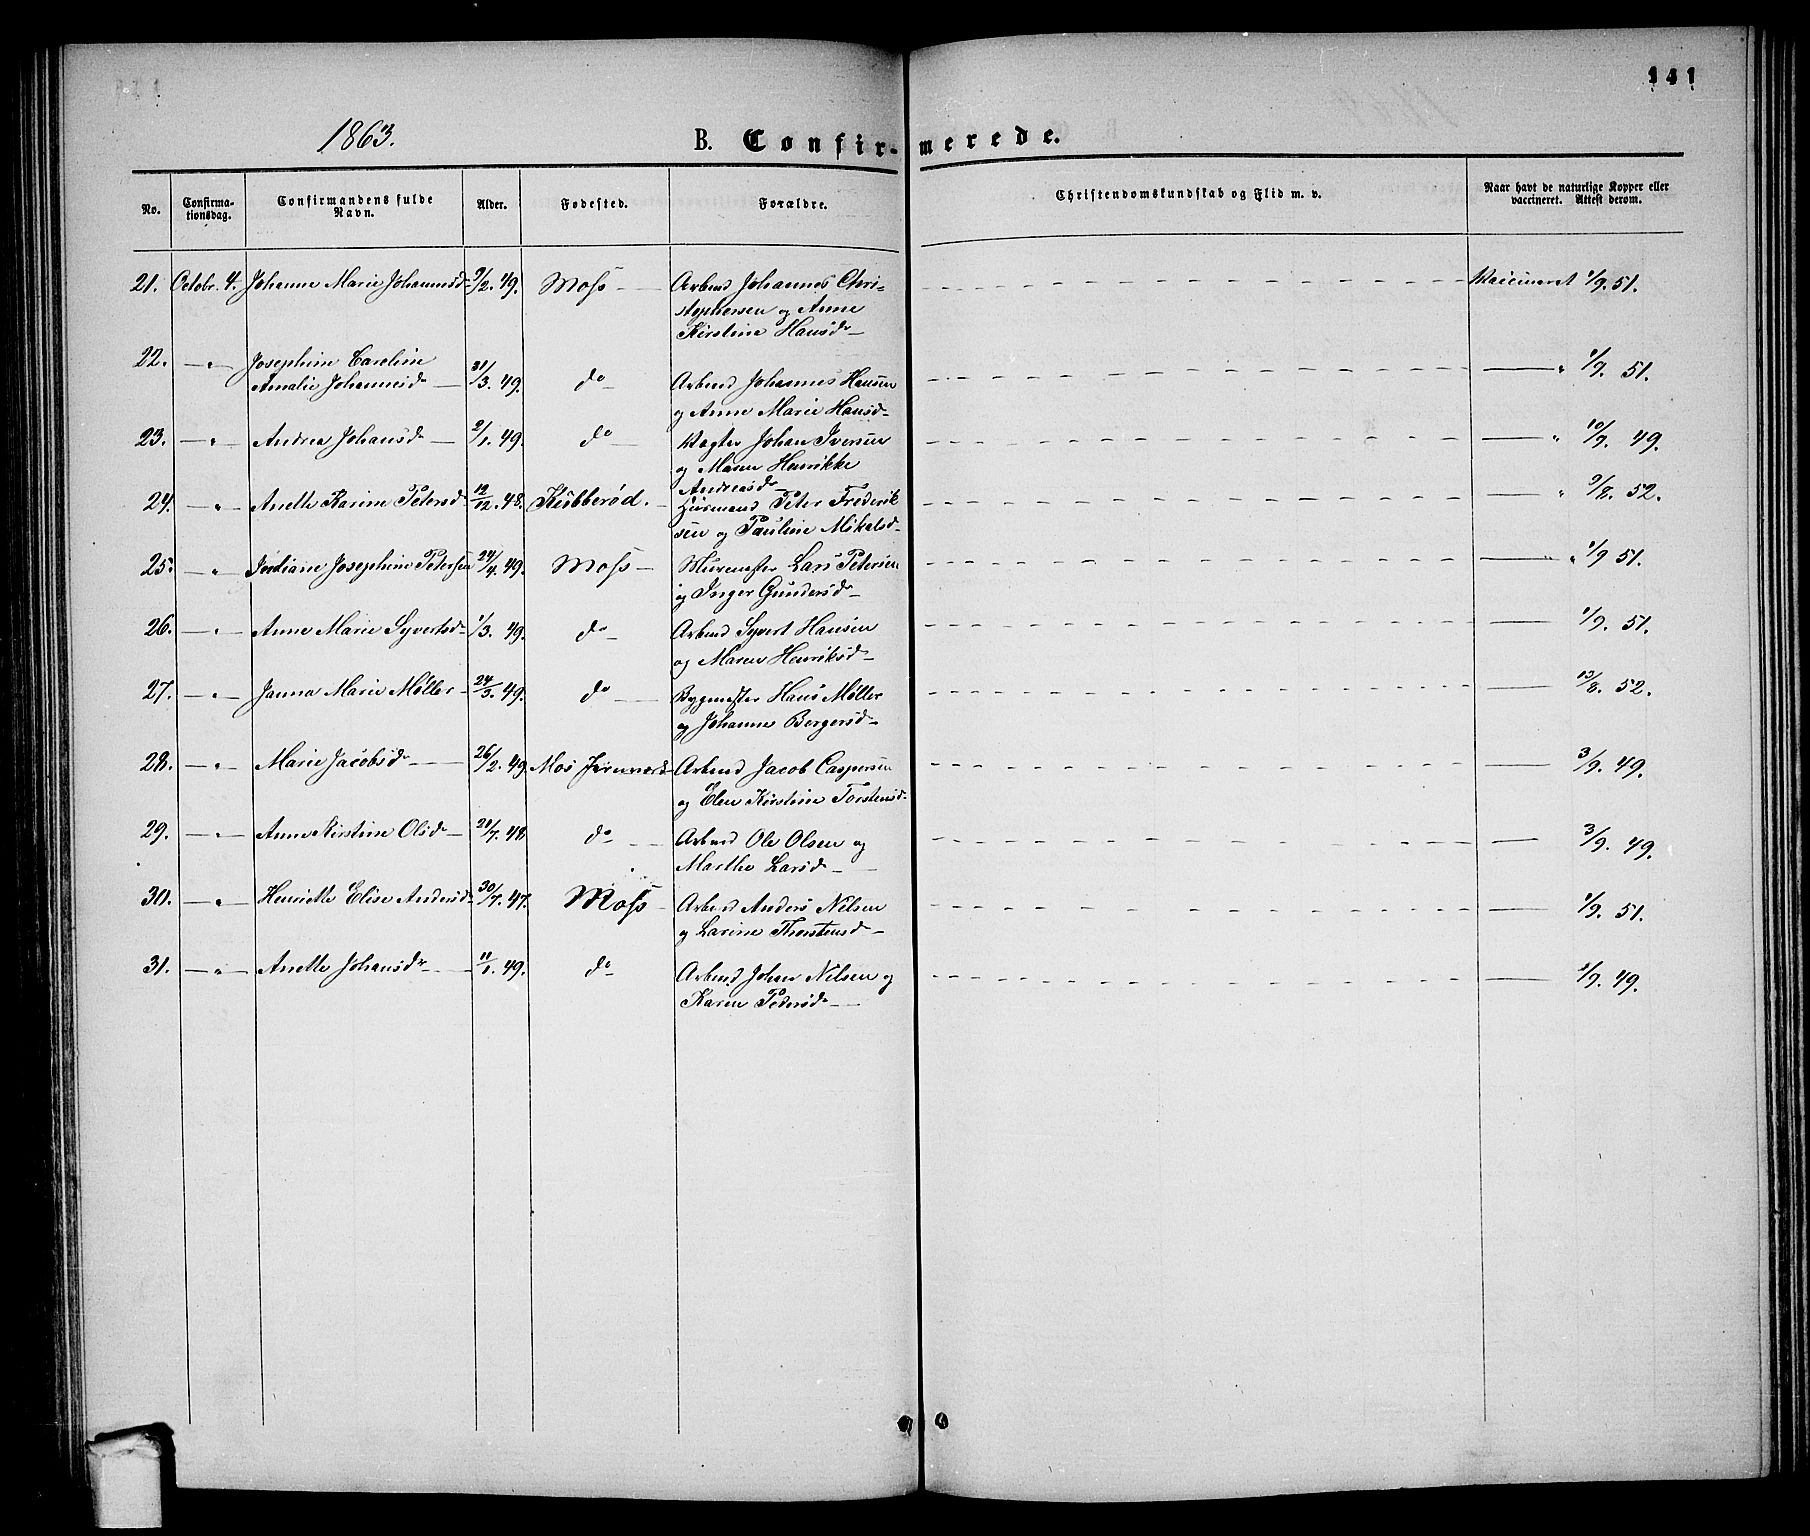 141
1863.
B. Confirmerede.
No.
Confirma-
tionsdag.
Confirmandens fulde
Navn.
Alder.
Fødested.
Forældre.
Christendomskundskab og Flid m. v.
Naar havt de naturlige Kopper eller
vaccineret. Attest derom.
21. Octobr. 4. Johanne Marie Johannesd 9/2. 49. Moss Arbmd Johannes Chri- Vaccineret 1/9. 51.
stophersen og Anne
Kirstine Hansd
22. " Josephine Caroline
Amalie Johannesd 31/3. 49. do Arbmd Johannes Hansen " 1/9. 51.
og Anne Marie Hansd
23. " Andrea Johansd 2/1. 49. do Vagter Johan Iversen " 10/9. 49.
og Maren Henrikke
Andreasd
24. " Anette Karine Petersd 12/12. 48. Kubberød. Husmand Peter Frederik " 9/8. 52.
sen og Pauline Mikalsd
25. " Josephine Petersen 24/4. 49. Moss Murmester Lars Petersen " 1/9 51.
og Inger Gundersd
26. " Anne Marie Syvertsd 1/3. 49. do Arbmd Syvert Hansen 1/9. 51.
og Maren Henriksd
27. " Janna Marie Møller 24/3. 49. do Bygmester Hans Møller 13/8. 52.
og Johanne Borgersd
28. " Marie Jacobsd 26/2. 49. Mos Jernværk Arbmd Jacob Caspersen 3/9. 49.
og Elen Kirstine Torstensd
29. " Anne Kirstine Olsd 21/7. 48 do Arbmd Ole Olsen og 3/9. 49.
Marthe Larsd
30. " Henriette Elise Andersd 30/7. 47. Moss Arbmd Anders Nilsen 1/9. 51.
og Larine Thorstensd
31. " Anette Johansd 11/1. 49. do Arbmd Johan Nilsen og /9. 49.
Karen Pedersd